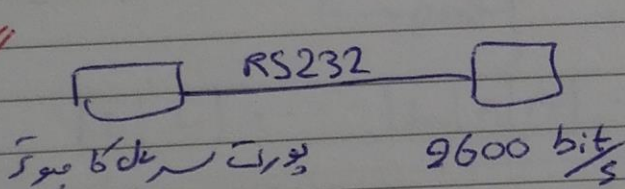 RS232
پورت سریال کامپیوتر 9600 bit/s